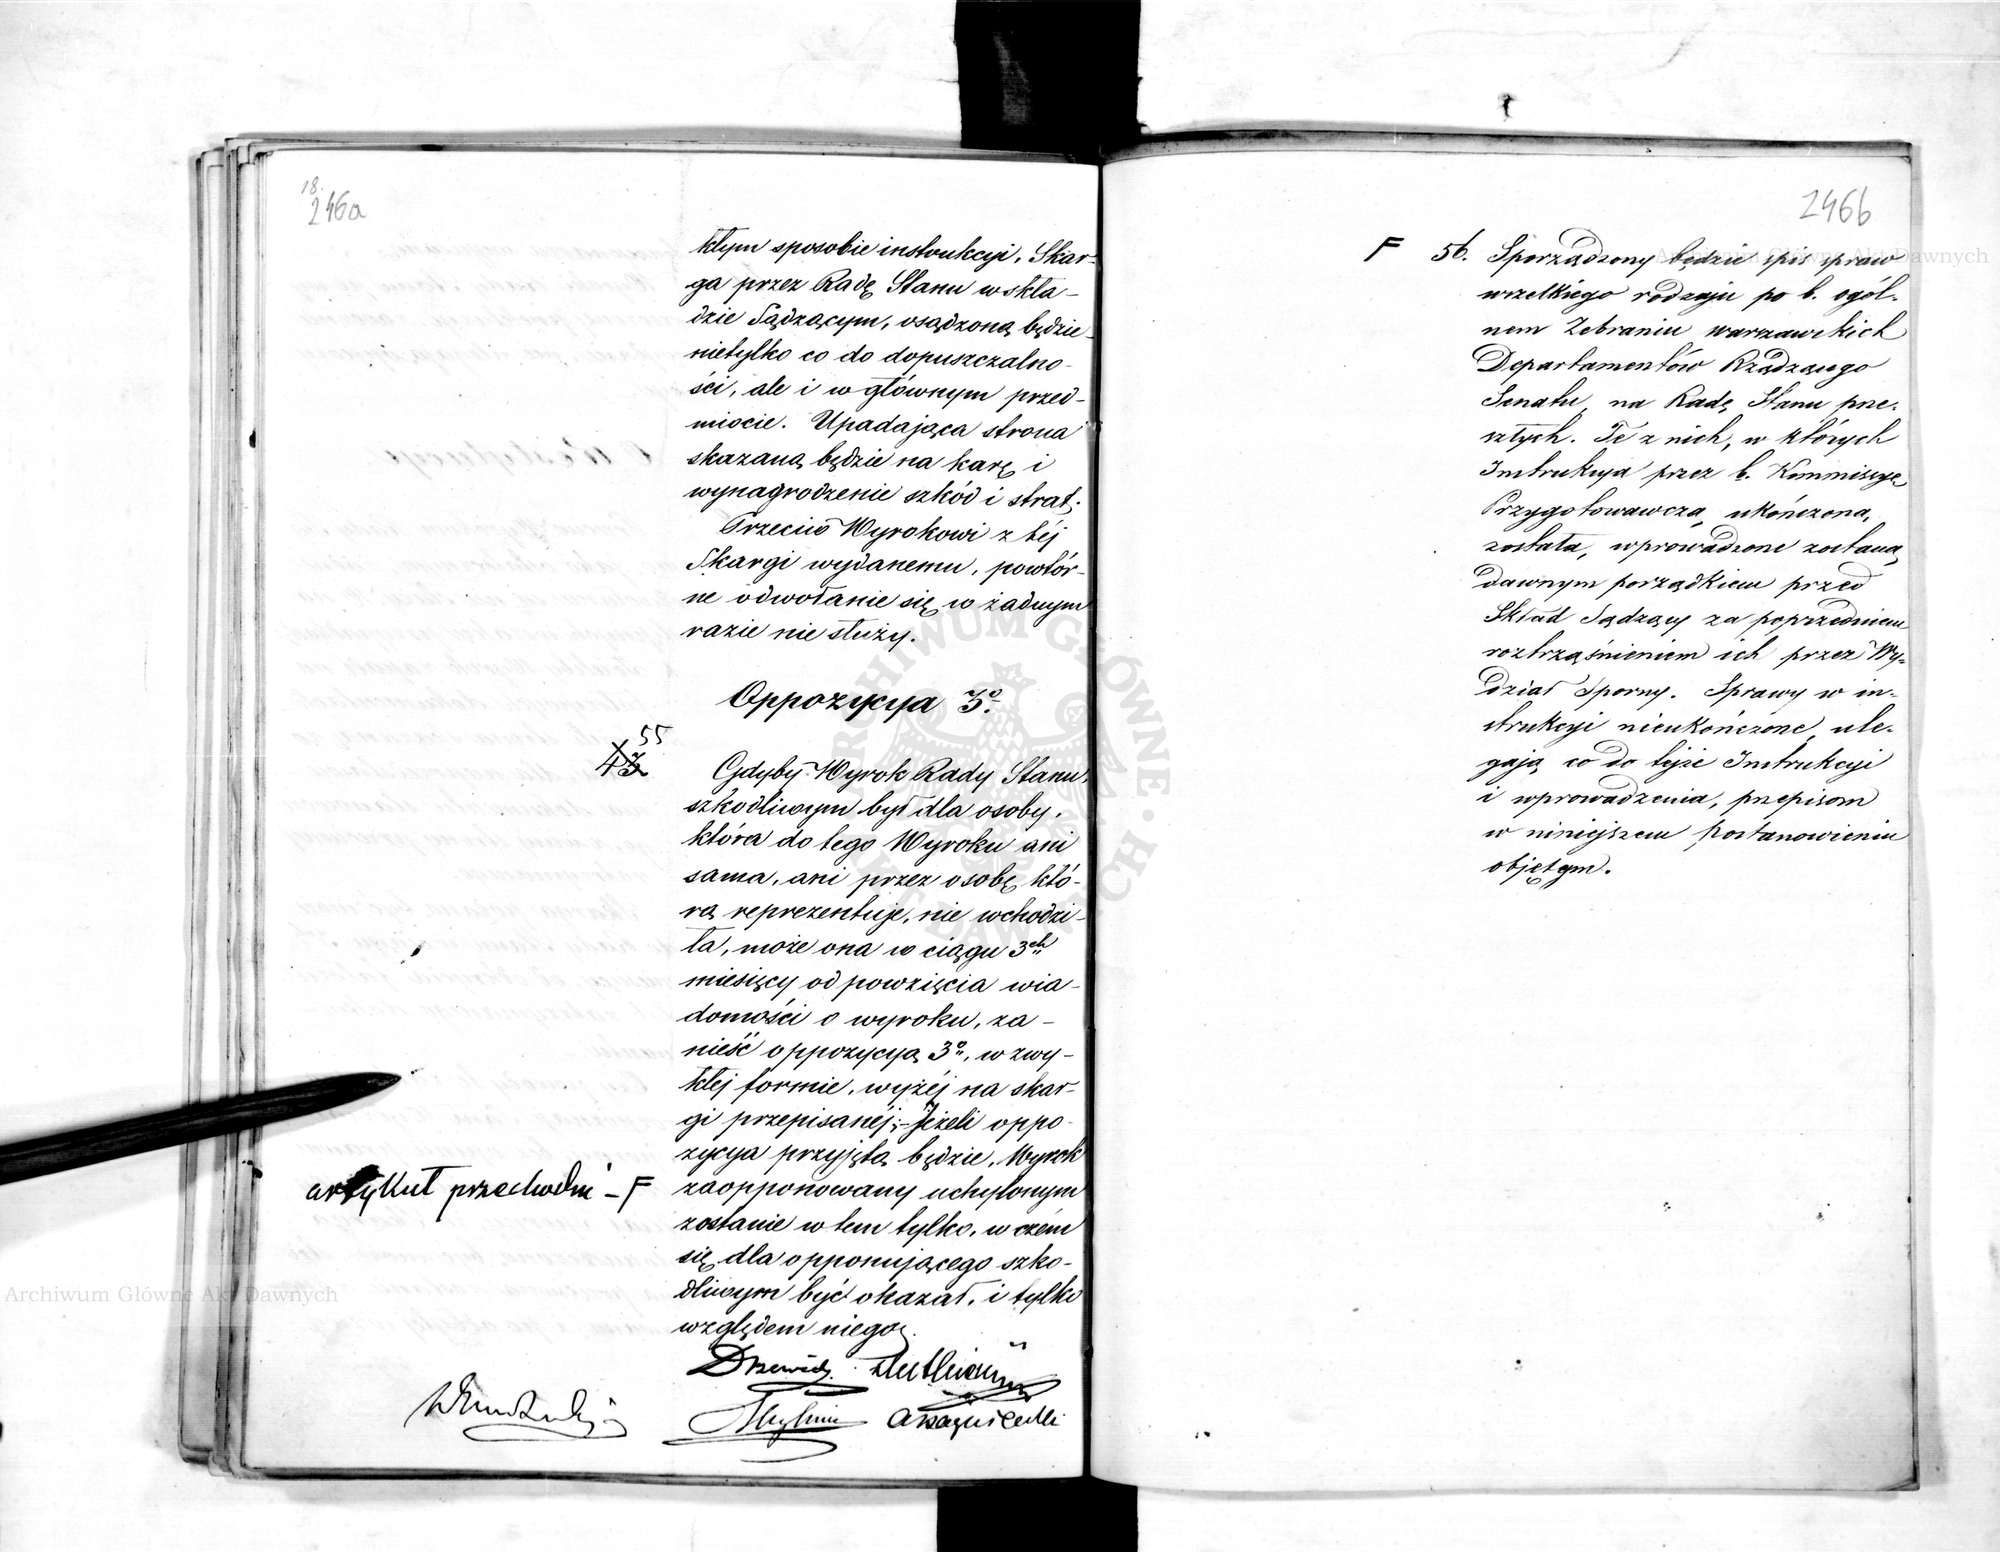 18.
246a
kłym sposobie instrukcyi. Skar-
ga przez Radę Stanu w skła-
dzie Sądzącym, osądzoną będzie
nietylko co do dopuszczalno-
ści, ale i w głównym przed-
miocie. Upadająca strona
skazaną będzie na karę i
wynagrodzenie szkód i strat.
Przeciw Wyrokowi z téj
Skargi wydanemu, powtór-
ne odwołanie się w żadnym
razie nie służy.
Oppozycya 3º.
55
43
Gdyby Wyrok Rady Stanu
szkodliwym był dla osoby,
która do tego Wyroku ani
sama, ani przez osobę któ-
rą reprezentuje, nie wchodzi-
ła, może ona w ciągu 3ch
miesięcy od powzięcia wia-
domości o wyroku, za-
nieść oppozycyą 3º, w zwy-
kłéj formie, wyżéj na skar-
gi przepisanéj; Jeżeli oppo-
zycya przyjętą będzie, Wyrok
zaopponowany uchylonym
zostanie w tem tylko, w czém
się dla opponującego szko-
dliwym być okazał, i tylko
względem niego.
artykuł przechodni - F
246b
F 56. Sporządzony będzie spis spraw
wszelkiego rodzaju po b. ogól-
nem Zebraniu warszawskich
Departamentów Rządzącego
Senatu, na Radę Stanu prze-
szłych. Te z nich, w których
Instrukcya przez b. Kommissyę
Przygotowawczą ukończoną
została, wprowadzone zostaną
dawnym porządkiem przed
Skład Sądzący za poprzedniem
roztrząśnieniem ich przez Wy-
dział Sporny. Sprawy w in-
strukcyi nieukończone, ule-
gają co do tejże Instrukcyi
i wprowadzenia, przepisom
w niniejszem postanowieniu
objętym.
Archiwum Główne Akt Dawnych
Archiwum Główne Akt Dawnych
ARCHIWUM GŁÓWNE AKT DAWNYCH